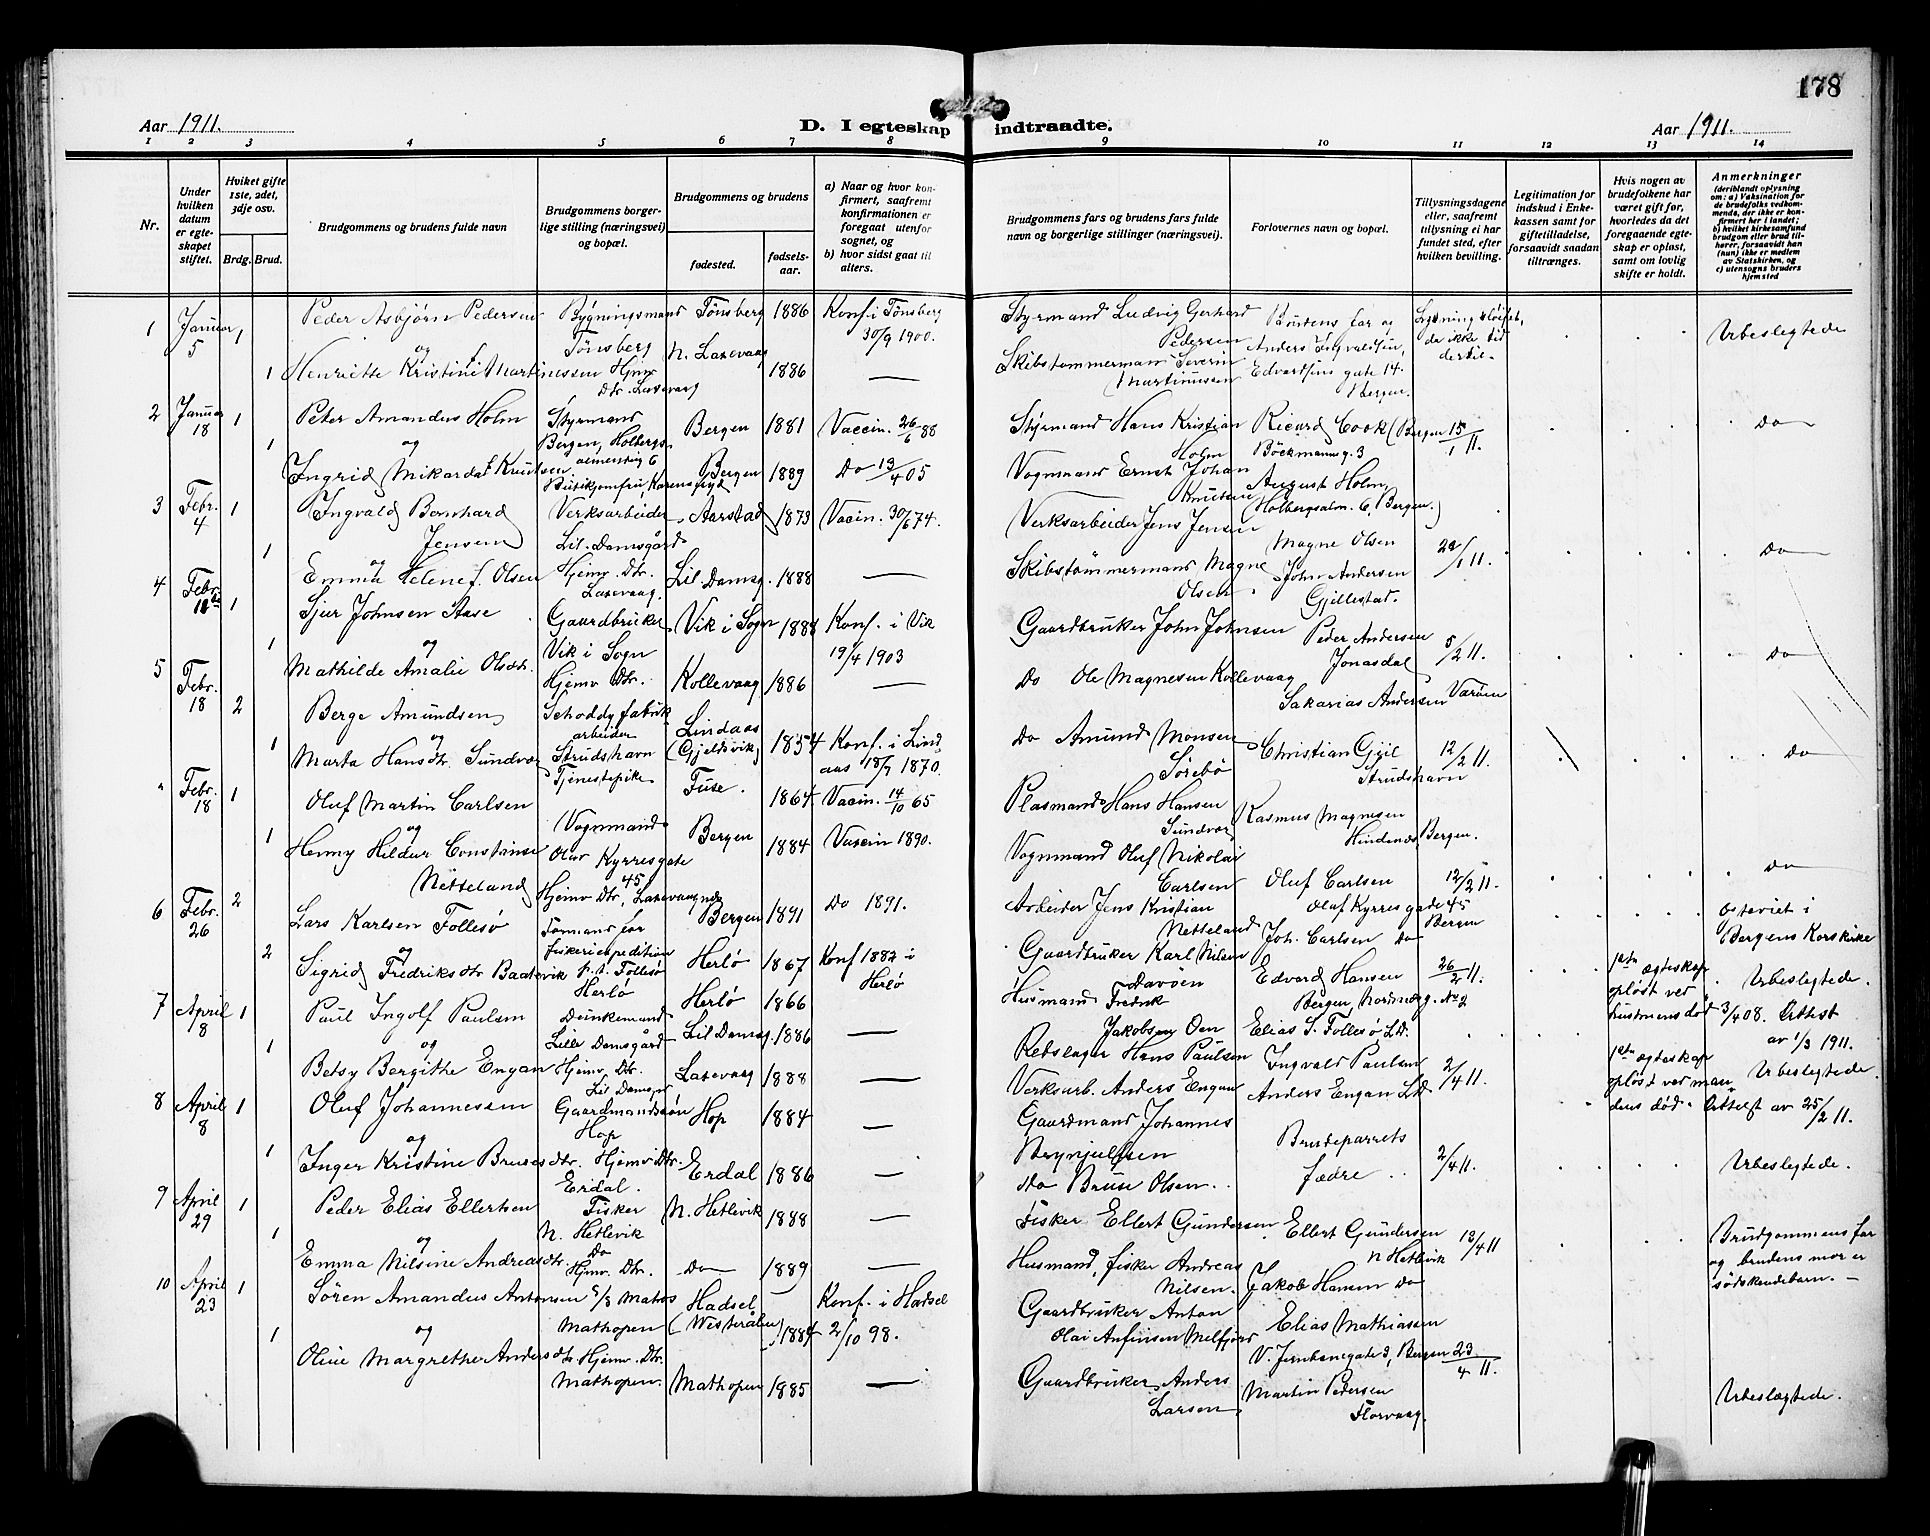 178
Aar 1911.
D. I egteskap indtraadte.
Aar 1911.
1 2 3 4 5 6 7 8 9 10 11 12 13 14
Nr.
Under hvilken datum er egteskapet stiftet.
Hviket gifte 1ste, 2det, 3dje osv.
Brdg. Brud.
Brudgommens og brudens fulde navn
Brudgommens borgerlige stilling (næringsvei) og bopæl.
Brudgommens og brudens
fødested.
fødselsaar.
a) Naar og hvor konfirmert, saafremt konfirmationen er foregaat utenfor sognet, og
b) hvor sidst gaat til alters.
Brudgommens fars og brudens fars fulde navn og borgerlige stillinger (næringsvei).
Forlovernes navn og bopæl.
Tillysningsdagene eller, saafremt tillysning ei har fundet sted, efter hvilken bevilling.
Legitimation for indskud i Enkekassen samt for giftetilladelse, forsaavidt saadan tiltrænges.
Hvis nogen av brudefolkene har været gift før, hvorledes da det foregaaende egteskap er opløst, samt om lovlig skifte er holdt.
Anmerkninger (deriblandt oplysning om: a) Vaksination for de brudefolks vedkommende, der ikke er konfirmert her i landet; b) hvilket kirkesamfund brudgom eller brud tilhører, forsaavidt han (hun) ikke er medlem av Statskirken, og c) utensogns bruders hjemsted
1 Januar 5 1 Peder Asbjørn Pedersen Bygningsmand Tønsberg Tønsberg 1886 Konf. i Tønsberg 30/9 1900. Styrmand Ludvig Gerhard Pedersen Brudens far og Anders Ingvaldsen, Edvardsens gate 14. Bergen. Ubeslegtede
og
1 Henriette Kristine Martinussen Hjmv. Dtr. Laxevaag N. Laxevaag 1886 — Skibstømmermand Severin Martinussen
2 Januar 18 1 Peter Amandus Holm Styrmand Bergen, Holbergsalmending 6 Bergen 1881 Vaccin. 26/6 88 Styrmand Hans Kristian Holm Ricard Cook (Bergen Böckmannsg. 3 15/1 11. Do
og
1 Ingrid Mikarda Knutsen Butikjomfru, Bergen 1889 Do 13/4 05 Vognmand Ernst Johan Knutsen August Holm, Holbergsalm. 6, Bergen.)
3 Febr. 4 1 Ingvald Bernhard Jensen Verksarbeider, Lil. Damsgård Aarstad 1873 Vacin. 30/6 74. Verksarbeider Jens Jensen Magne Olsen 22/1 11. Do
og
1 Emma Helene Olsen Hjemv. Dtr. Laxevaag. Lil. Damsg. 1888 — Skibstømmermand Magne Olsen. John Andersen Gjellestad.
4 Febr. 1 Sjur Johnsen Aase Gaardbruker Vik i Sogn Vik i Sogn 1888 Konf. i Vik 19/4 1903 Gaardbruker John Johnsen Peder Andersen Jonasdal 5/2 11. Do
og
1 Mathilde Amalie Olsdtr. Hjemv. Dtr. Kollevaag 1886 — Do Ole Magnesen Kollevaag Sakarias Andersen
5 Febr. 18 2 Berge Amundsen Schoddyfabrik arbeider Strudshavn Lindaas (Gjeldsvik) 1854 Konf. i Lindaas 18/7 1870. Do Amund Monsen Sørebø Christian Gjil Strudshavn 12/2 11. Do
og
1 Marta Hansdtr. Sundvor Tjenestepike Fuse. 1864 Vacin. 14/10 65 Plasmand Hans Hansen Sundvor Rasmus Magnesen
" Febr. 18 1 Oluf Martin Carlsen Vognmand Olav Kyrresgate 45 Bergen 1884 Vaccin 1890. Vognmand Oluf Nikolai Carlsen Oluf Carlsen Olaf Kyrresgade 45 Bergen 12/2 11. Do
og
1 Henny Hildur Constanse Netteland Hjemv. Dtr, Laxevaagnes Bergen 1891 Do 1891. Arbeider Jens Kristian Netteland Joh. Carlsen Do
6 Febr. 26 2 Lars Karlsen Follesø Formand for fiskeriexpedition p.t. Follesø Herlø Herlø 1867 Konf 1882 i Herlø Gaardbruker Karl Nilsen Davøen Edvard Hansen Bergen, Nordnesg. No 2 26/2 11. 1ste ægteskap opløst ved hustruens død 3/4 08. Attest av 1/3 1911. i Bergens Korskirke Ubeslegtede.
og
2 Sigrid Fredriksdtr. Herlø 1866 Husmand Fredrik Jakobsen Oen Elias S. Follesø L.D. 1ste ægteskap opløst ved mandens død. Attest av 25/2 11.
7 April 8 1 Paul Ingolf Paulsen Lille Damsgård Lil Damsg. 1886 — Rebslager Hans Paulsen Ingvald Paulsen 2/4 11. Ubeslegtede.
og
1 Betsy Bergithe Engan Hjemv. Dtr. Lil Damsgr. Laxevaag 1888 — Verksarb. Anders Engan Anders Engan L.D.
8 April 8 1 Oluf Johannessen Gaardmandssøn Hop Hop 1884 — Gaardmand Johannes Brynjulfsen Brudeparrets fædre 2/4 11. Ubeslegtede.
og
1 Inger Kristine Brusesdtr. Hjemv. Dtr. Erdal. Erdal 1886 — Do Bruse Olsen.
9 April 29 1 Peder Elias Ellertsen Fisker N. Hetlevik N. Hetlevik 1888 — Fisker Ellert Gundersen Ellert Gundersen N Hetlevik 13/4 11 Brudgommens far og brudens mor er sødskendebarn. —
og
1 Emma Nilsine Andreasdtr. Do Hjmv. Dtr. Do 1889 — Husmand, fisker Andreas Nilsen. Jakob Hansen Do
10 April 23 1 Sören Amandus Antonsen Mathopen Hadsel (Westerålen) 1884 Konf. i Hadsel 2/10 98. Gaardbruker Anton Olai Anfinsen Melfjord Elias Mathiassen Bergen 23/4 11. Ubeslægtede.
og
1 Oline Margrethe Andersdtr. Hjemv. Dtr. Mathopen. Mathopen 1885 — Gaardbruker Anders Larsen. Martin Pedersen Florvaag.